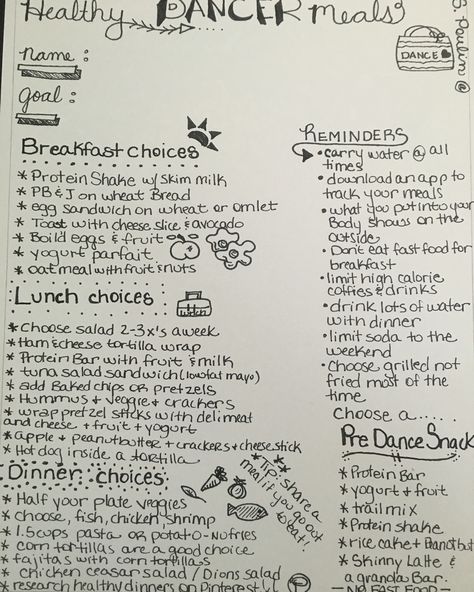 Healthy DANCER Meals
S. Paulin @
DANCE
name :
goal :
Breakfast choices
* Protein Shake w/ skim milk
* PB & J on wheat Bread
* egg sandwich on wheat or omlet
* Toast with cheese slice & avocado
* Boild eggs & fruit
* yogurt parfait
* oatmeal with fruit & nuts
Lunch choices
* Choose salad 2-3x's a week
* Ham & cheese tortilla wrap
* Protein Bar with fruit & milk
* tuna salad sandwich (lowfat mayo)
* add Baked chips or pretzels
* Hummus + veggie + crackers
* wrap pretzel sticks with deli meat
and cheese + fruit + yogurt
* apple + peanutbutter + crackers + cheese stick
* Hot dog inside a tortilla
Dinner choices
* Half your plate veggies
* choose, fish, chicken, shrimp
* 1.5 cups pasta or potato - no fries
* corn tortillas are a good choice
* fajitas with corn tortillas
* chicken ceasar salad / Dions salad
* research healthy dinners on Pinterest
* Try & share a
meal if you go out
to eat!
REMINDERS
• carry water @ all
times
• download an app to
track your meals
• what you put into your
Body shows on the
outside
• Don't eat fast food for
breakfast
• limit high calorie
coffies & drinks
• drink lots of water
with dinner
• limit soda to the
weekend
• choose grilled not
fried most of the
time
Choose a.....
Pre Dance Snack
* Protein Bar
* yogurt + fruit
* trail mix
* Protein shake
* rice cake + Peanutbut
* Skinny Latte &
a granola Bar.
— NO FAST FOOD —